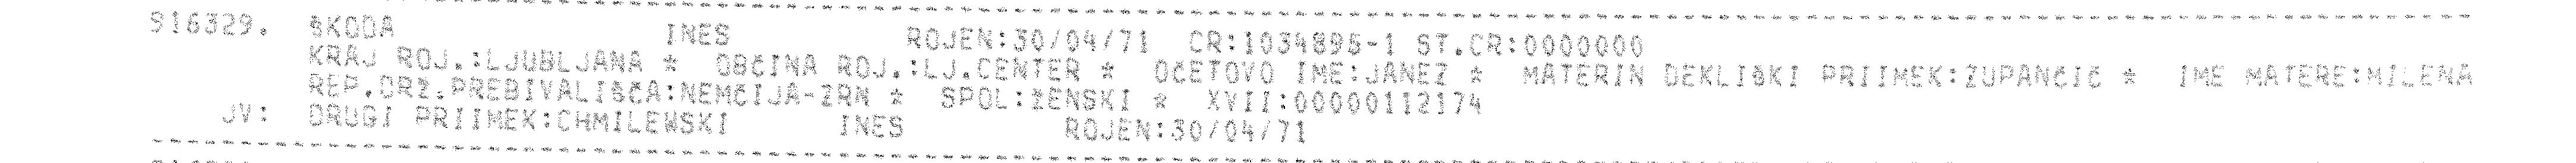 916329. ŠKODA INES ROJEN:30/04/71 CR:1034895-1 ST.CR:0000000
KRAJ ROJ.:LJUBLJANA * OBČINA ROJ.:LJ.CENTER * OČETOVO IME:JANEZ * MATERIN DEKLIŠKI PRIIMEK:ZUPANČIČ * IME MATERE:MILENA
REP.DRŽ.PREBIVALIŠČA:NEMČIJA-ZRN * SPOL:ŽENSKI * XVII:00000112174
JV: DRUGI PRIIMEK:CHMILEWSKI INES ROJEN:30/04/71